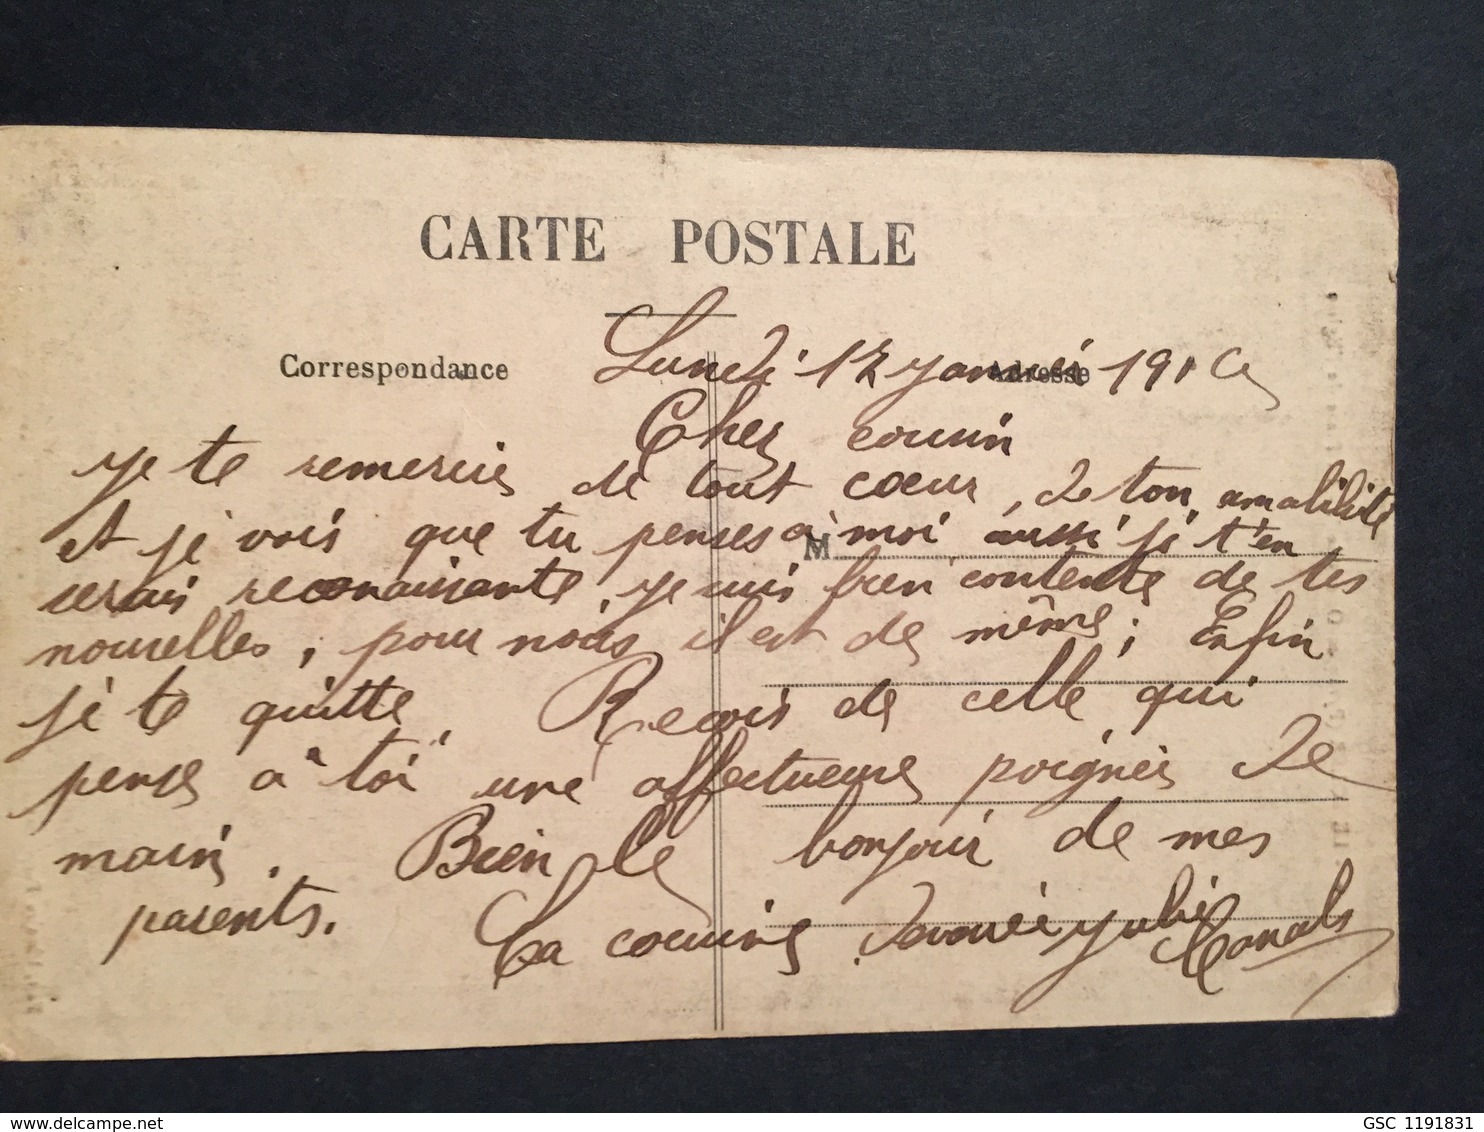 CARTE POSTALE
Correspondance
Adresse
Lundi 12 Janvié 191
Cher cousin
Je te remercie de tout cœur, de ton amabilité
et je vois que tu penses à moi aussi je t'en
M
serais reconaissante, je suis bien contente de tes
nouvelles, pour nous il est de même; Enfin
je te quitte. Reçois de celle qui
pense à toi une affectueuse poignée de
main. Bien le bonjour de mes
parents.
Ta cousine dévouée Julie
Canals
www.delcampe.net
GSC 1191831